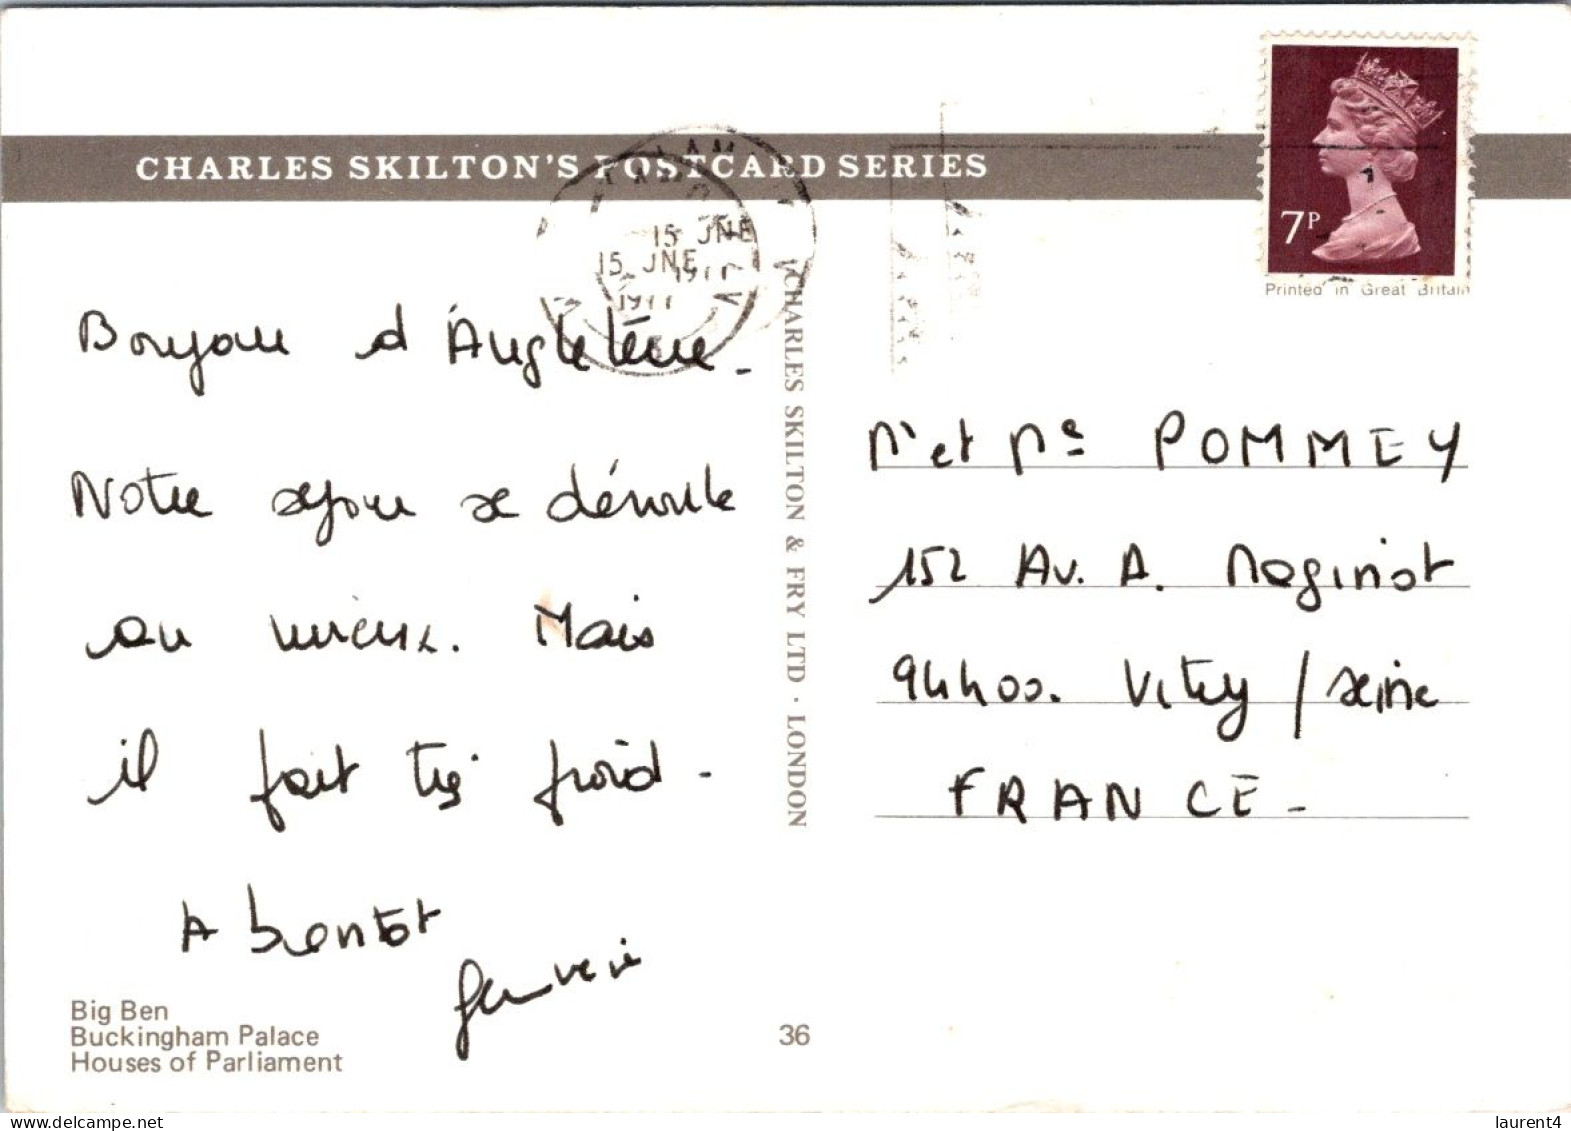 CHARLES SKILTON'S POSTCARD SERIES
15 JNE
1977
15 JNE
1977
7P
Printed in Great Britain
Bonjour d'Angleterre.
Notre séjour se déroule
au mieux. Mais
il fait très froid.
A bientôt
CHARLES SKILTON & FRY LTD · LONDON
Mr et Me POMMEY
152 Av. A. Maginot
94400. Vitry / Seine
FRANCE.
Big Ben
Buckingham Palace
Houses of Parliament
36
laurent4